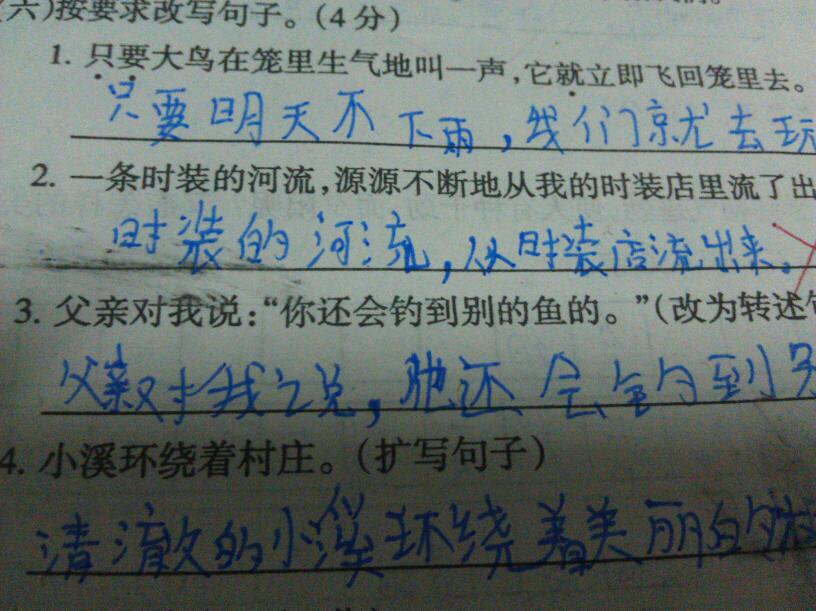 (六)按要求改写句子。(4分)
1. 只要大鸟在笼里生气地叫一声,它就立即飞回笼里去。
只要明天不下雨,我们就去玩
2. 一条时装的河流,源源不断地从我的时装店里流了出
时装的河流,从时装店流出来。
3. 父亲对我说:“你还会钓到别的鱼的。”(改为转述句
父亲对我说,他还会钓到别
4. 小溪环绕着村庄。(扩写句子)
清澈的小溪环绕着美丽的村